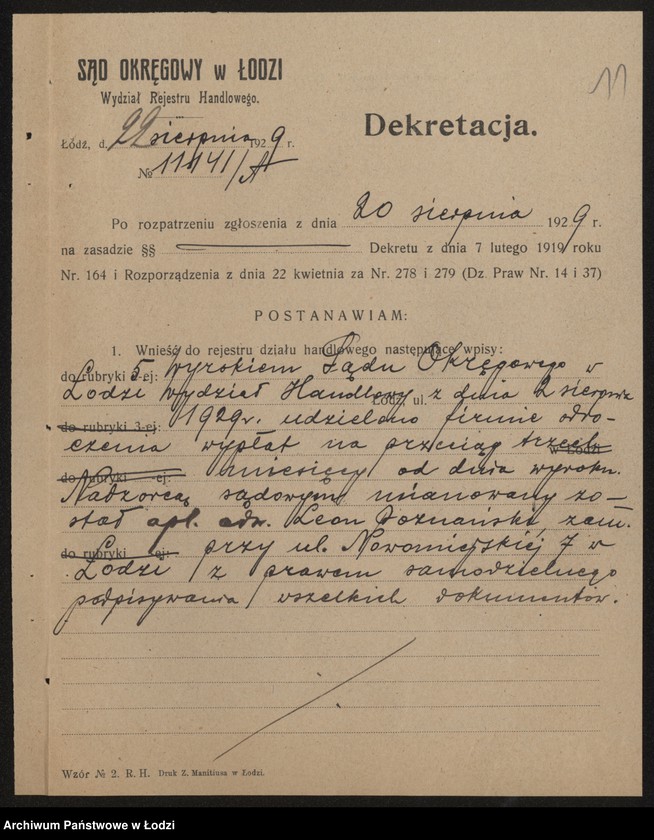 11
SĄD OKRĘGOWY w ŁODZI
Wydział Rejestru Handlowego.
Dekretacja.
Łódź, d. 22 sierpnia 1929 r.
№ 11141/A
Po rozpatrzeniu zgłoszenia z dnia 20 sierpnia 1929 r.
na zasadzie §§ Dekretu z dnia 7 lutego 1919 roku
Nr. 164 i Rozporządzenia z dnia 22 kwietnia za Nr. 278 i 279 (Dz. Praw Nr. 14 i 37)
POSTANAWIAM:
1. Wnieść do rejestru działu handlowego następujące wpisy:
do rubryki 5-ej: Wyrokiem Sądu Okręgowego w
Łodzi Wydział Handlowy Łódź, ul. z dnia 2 sierpnia
do rubryki 3-ej: 1929 r. udzielono firmie odro-
czenia wypłat na przeciąg trzech w Łodzi
do rubryki -ej: miesięcy od dnia wyroku.
Nadzorcą sądowym mianowany zo-
stał apl. adw. Leon Poznański, zam.
do rubryki -ej: przy ul. Nowomiejskiej 7 w
Łodzi z prawem samodzielnego
podpisywania wszelkich dokumentów.
Wzór № 2. R. H. Druk Z. Manitiusa w Łodzi.
Archiwum Państwowe w Łodzi